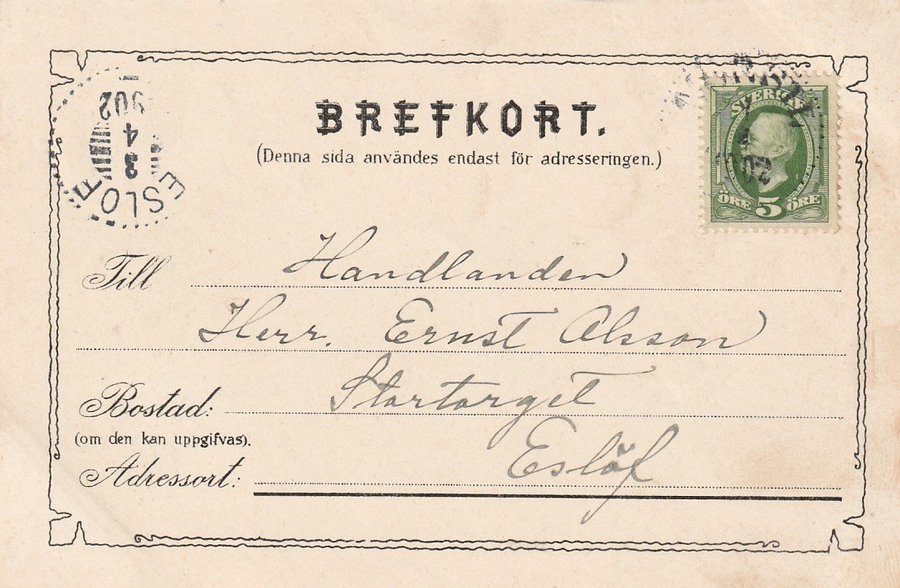 BREFKORT.
(Denna sida användes endast för adresseringen.)
SVERIGE
ÖRE 5 ÖRE
1902
3 4
ESLÖF
Till Handlanden
Herr. Ernst Olsson
Bostad: Stortorget
(om den kan uppgifvas).
Adressort: Eslöf